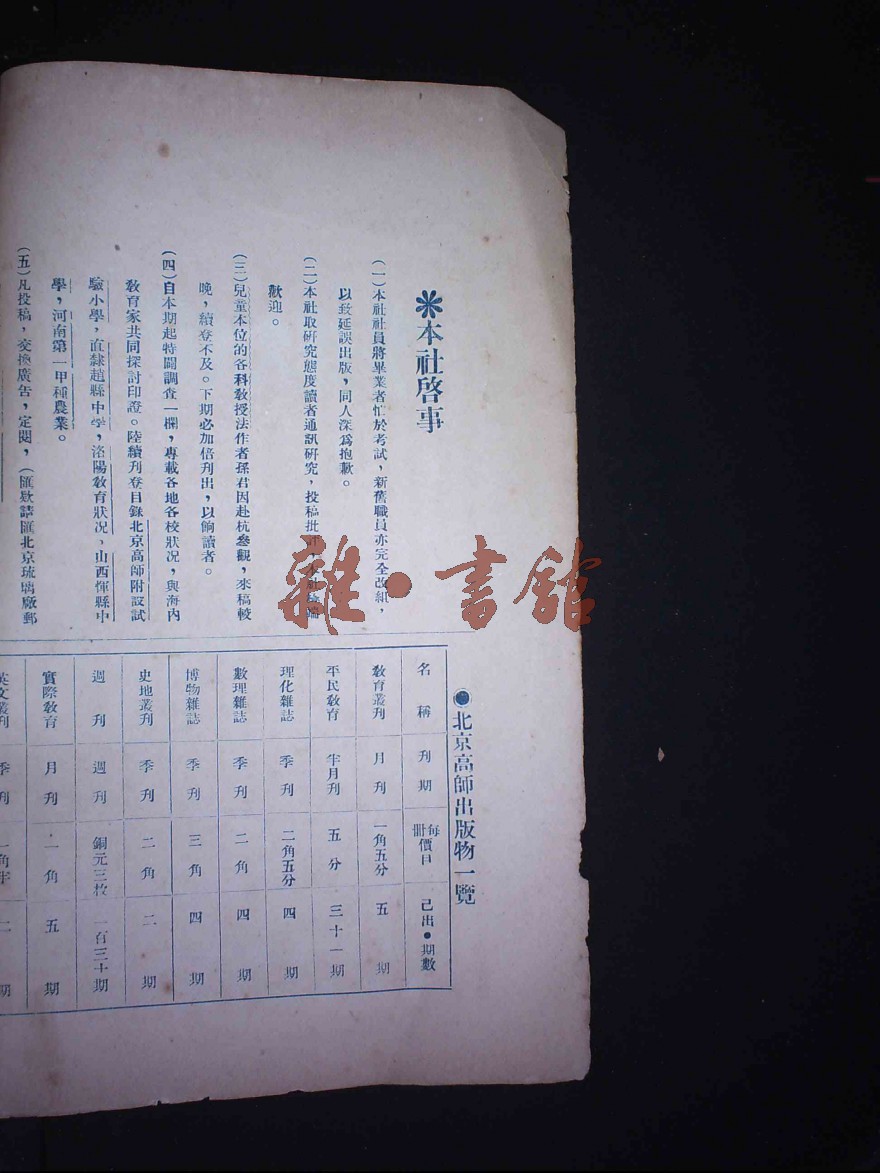 ✻本社啓事
(一)本社社員將畢業者忙於考試，新舊職員亦完全改組，
以致延誤出版，同人深爲抱歉。
(二)本社取研究態度讀者通訊研究，投稿批評，
歡迎。
(三)兒童本位的各科敎授法作者孫君因赴杭參觀，來稿較
晚，續登不及。下期必加倍刊出，以餉讀者。
(四)自本期起特闢調查一欄，專載各地各校狀况，與海內
敎育家共同探討印證。陸續刊登目錄北京高師附設試
驗小學，直隸趙縣中學，洛陽敎育狀况，山西惲縣中
學，河南第一甲種農業。
(五)凡投稿，交換廣告，定閱，(匯欵請匯北京琉璃廠郵
●北京高師出版物一覽
名稱 刊期 每冊價目 已出●期數
敎育叢刊 月刊 一角五分 五期
平民敎育 半月刊 五分 三十一期
理化雜誌 季刊 二角五分 四期
數理雜誌 季刊 二角 四期
博物雜誌 季刊 三角 四期
史地叢刊 季刊 二角 二期
週刊 週刊 銅元三枚 一百三十期
實際敎育 月刊 一角 五期
英文叢刊 季刊 一角半 期
雜·書館